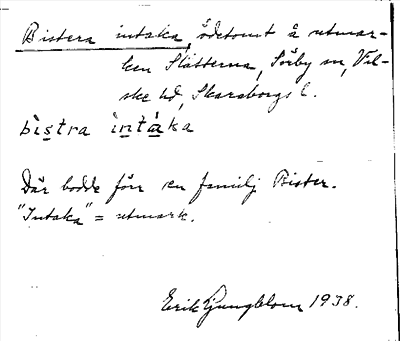 Bistera intaka, ödetomt å utmar-
ken Slätterna, Sörby sn, Vil-
ske hd, Skaraborgs l.
bìstra ìntàka
Där bodde förr en familj Bister.
"Intaka" = utmark.
Erik Ljungblom 1938.